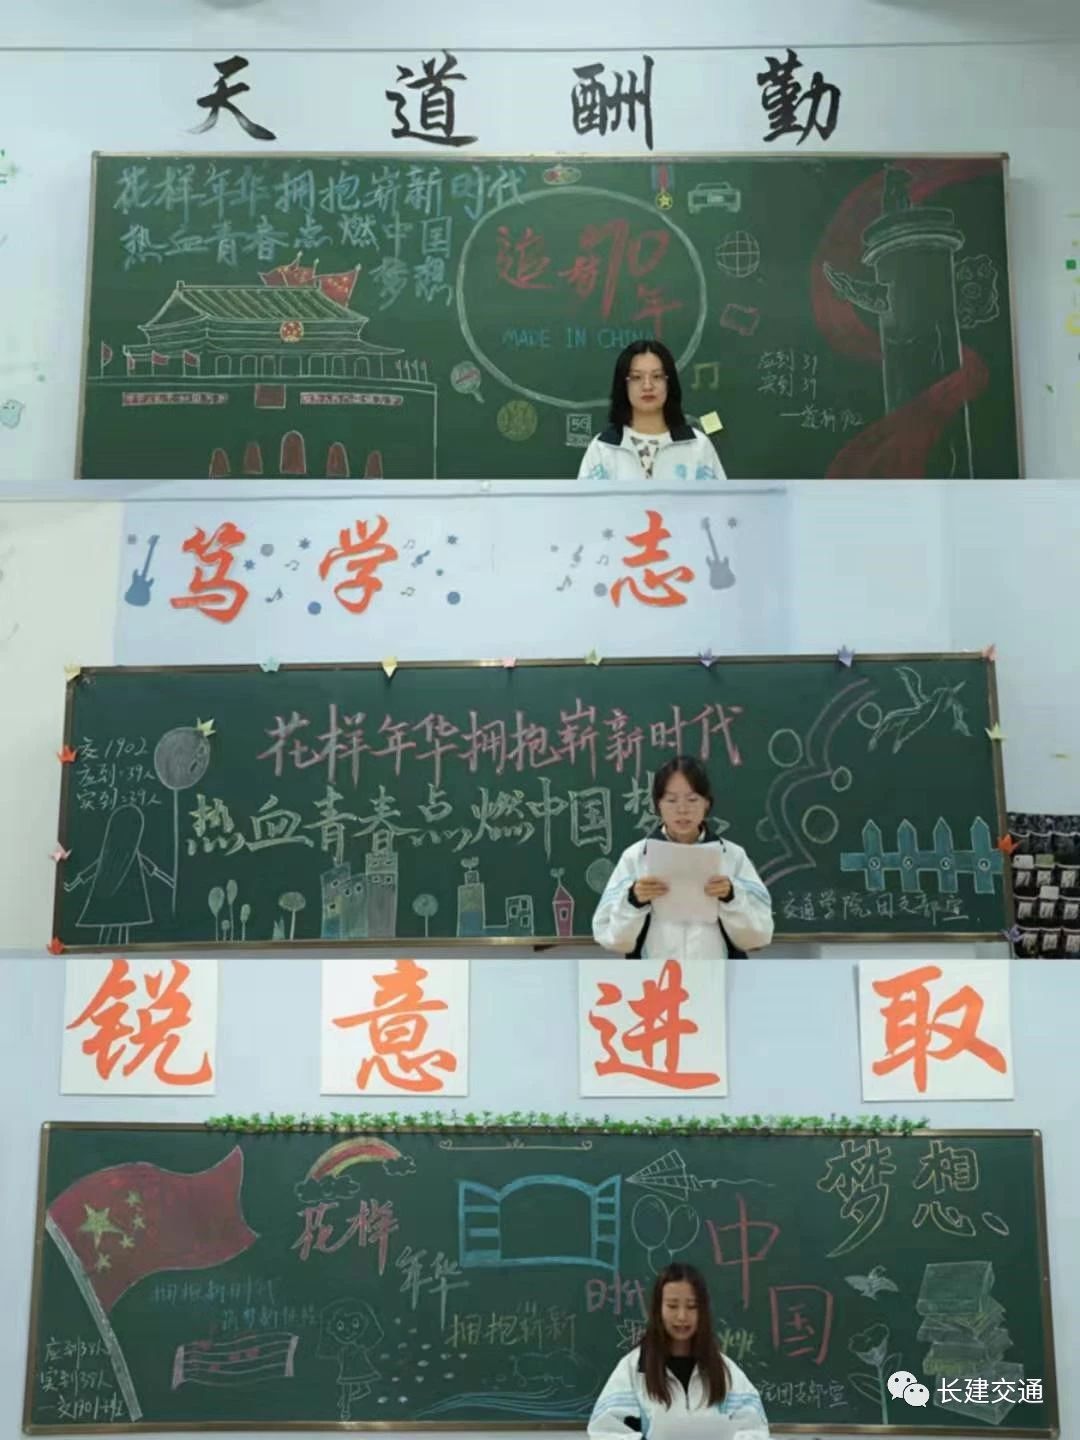 天道酬勤
花样年华拥抱崭新时代
热血青春点燃中国
梦想
追梦70年
MADE IN CHINA
5G
应到39
实到39
笃学 志
花样年华拥抱崭新时代
热血青春点燃中国梦
交1902
应到:39人
实到:39人
交通学院团支部宣
锐意进取
梦想
花样
年华
中国
拥抱新时代
拥抱崭新
时代
应到39人
实到39人
长建交通